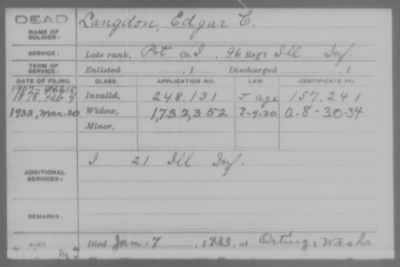 DEAD
NAME OF SOLDIER: Langdon, Edgar C.
SERVICE: Late rank, Pvt Co. I, 96 Regt Ill Inf.
TERM OF SERVICE: Enlisted , 1 Discharged , 1
DATE OF FILING. CLASS. APPLICATION NO. LAW. CERTIFICATE NO.
1878 Feb 4 Invalid, 248,131 J age 157,241
1933, Mar. 20 Widow, 1,732,352 A-8-30-34
Minor,
ADDITIONAL SERVICES: I 21 Ill Inf.
REMARKS:
Died Jan. 7, 1933, at Orting, Wash